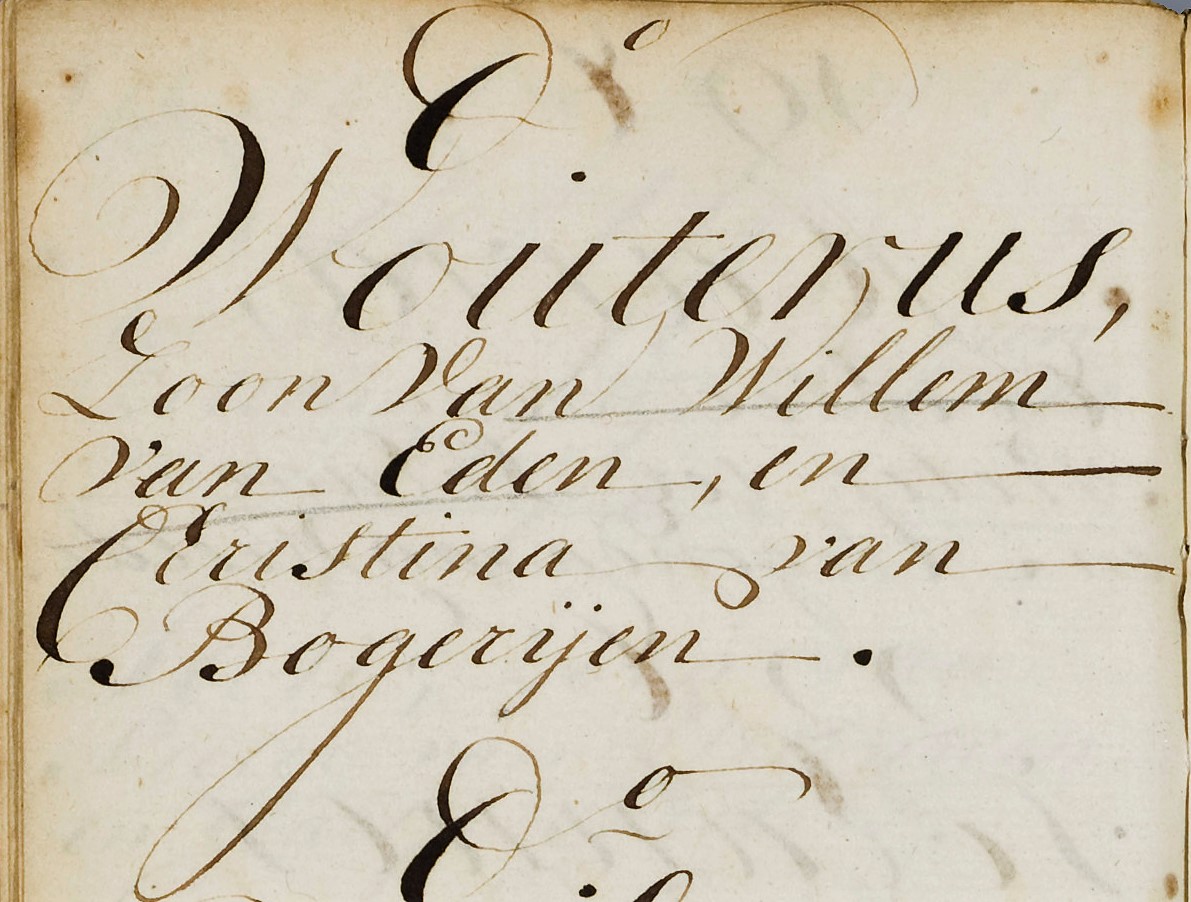 D°
Wouterus,
Zoon Van Willem
van Eden, en
Cristina van
Bogerijen.
D°